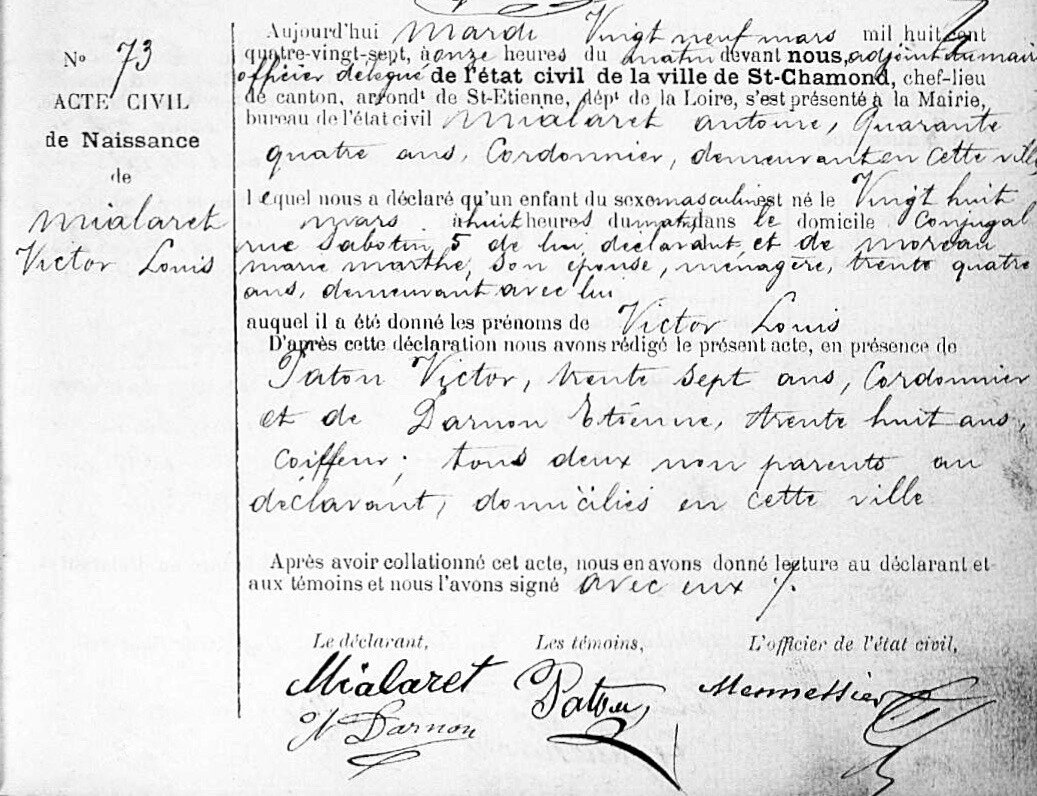 N° 73
ACTE CIVIL
de Naissance
de
Mialaret
Victor Louis
Aujourd'hui Mardi Vingt neuf mars mil huit cent
quatre-vingt-sept, à onze heures du matin devant nous, adjoint au maire
officier délégué de l'état civil de la ville de St-Chamond, chef-lieu
de canton, arrondt de St-Etienne, dépt de la Loire, s'est présenté à la Mairie,
bureau de l'état civil Mialaret Antoine, Quarante
quatre ans, Cordonnier, demeurant en cette ville
lequel nous a déclaré qu'un enfant du sexe masculin est né le Vingt huit
mars à huit heures du matin, dans le domicile Conjugal
rue Sabotin 5 de lui déclarant et de Moreau
Marie Marthe, son épouse, ménagère, trente quatre
ans, demeurant avec lui
auquel il a été donné les prénoms de Victor Louis
D'après cette déclaration nous avons rédigé le présent acte, en présence de
Paton Victor, trente sept ans, Cordonnier
et de Darnon Etienne, trente huit ans,
Coiffeur; tous deux non parents au
déclarant, domiciliés en cette ville
Après avoir collationné cet acte, nous en avons donné lecture au déclarant et
aux témoins et nous l'avons signé avec eux
Le déclarant, Les témoins, L'officier de l'état civil,
Mialaret Paton
Darnon